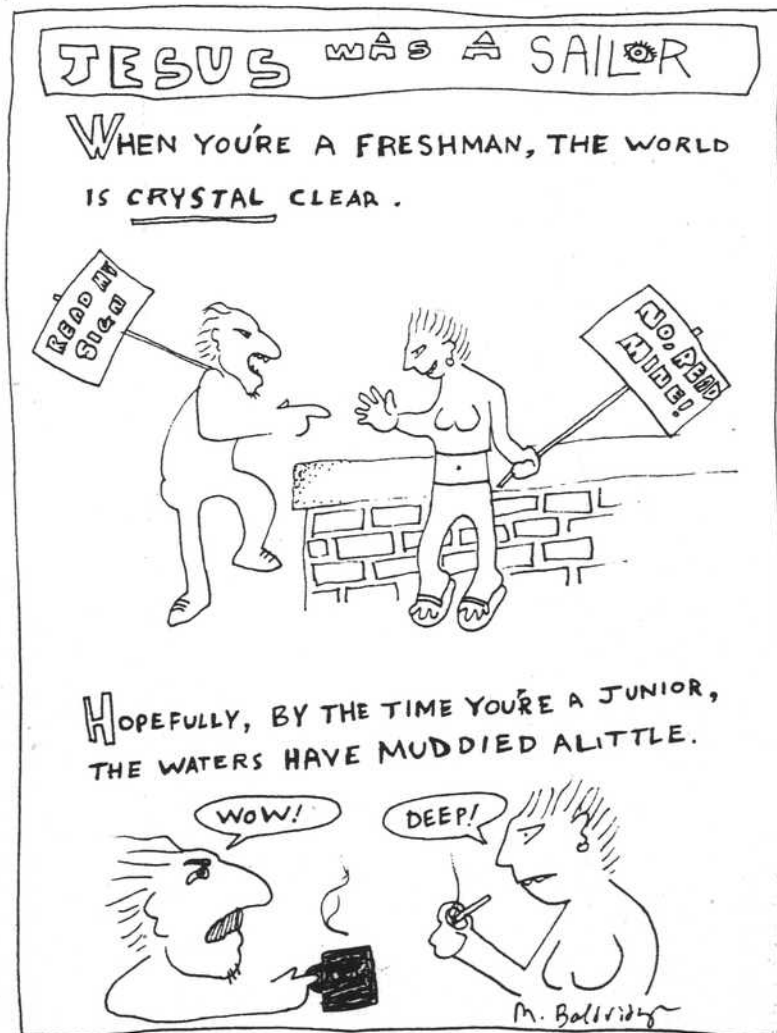 JESUS WAS A SAILOR
WHEN YOU'RE A FRESHMAN, THE WORLD
IS CRYSTAL CLEAR.
READ MY
SIGN
NO, READ
MINE!
HOPEFULLY, BY THE TIME YOU'RE A JUNIOR,
THE WATERS HAVE MUDDIED ALITTLE.
WOW!
DEEP!
M. Baldridge